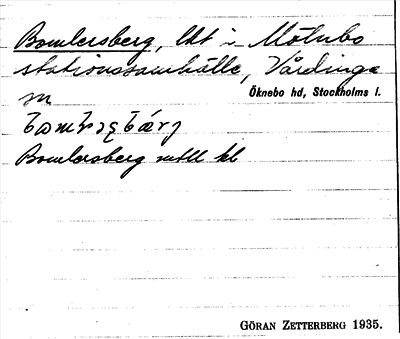 Bomlersberg, lht i Mölnbo
stationssamhälle, Vårdinge
sn Öknebo hd, Stockholms l.
Bomlersberg mtll kl
GÖRAN ZETTERBERG 1935.